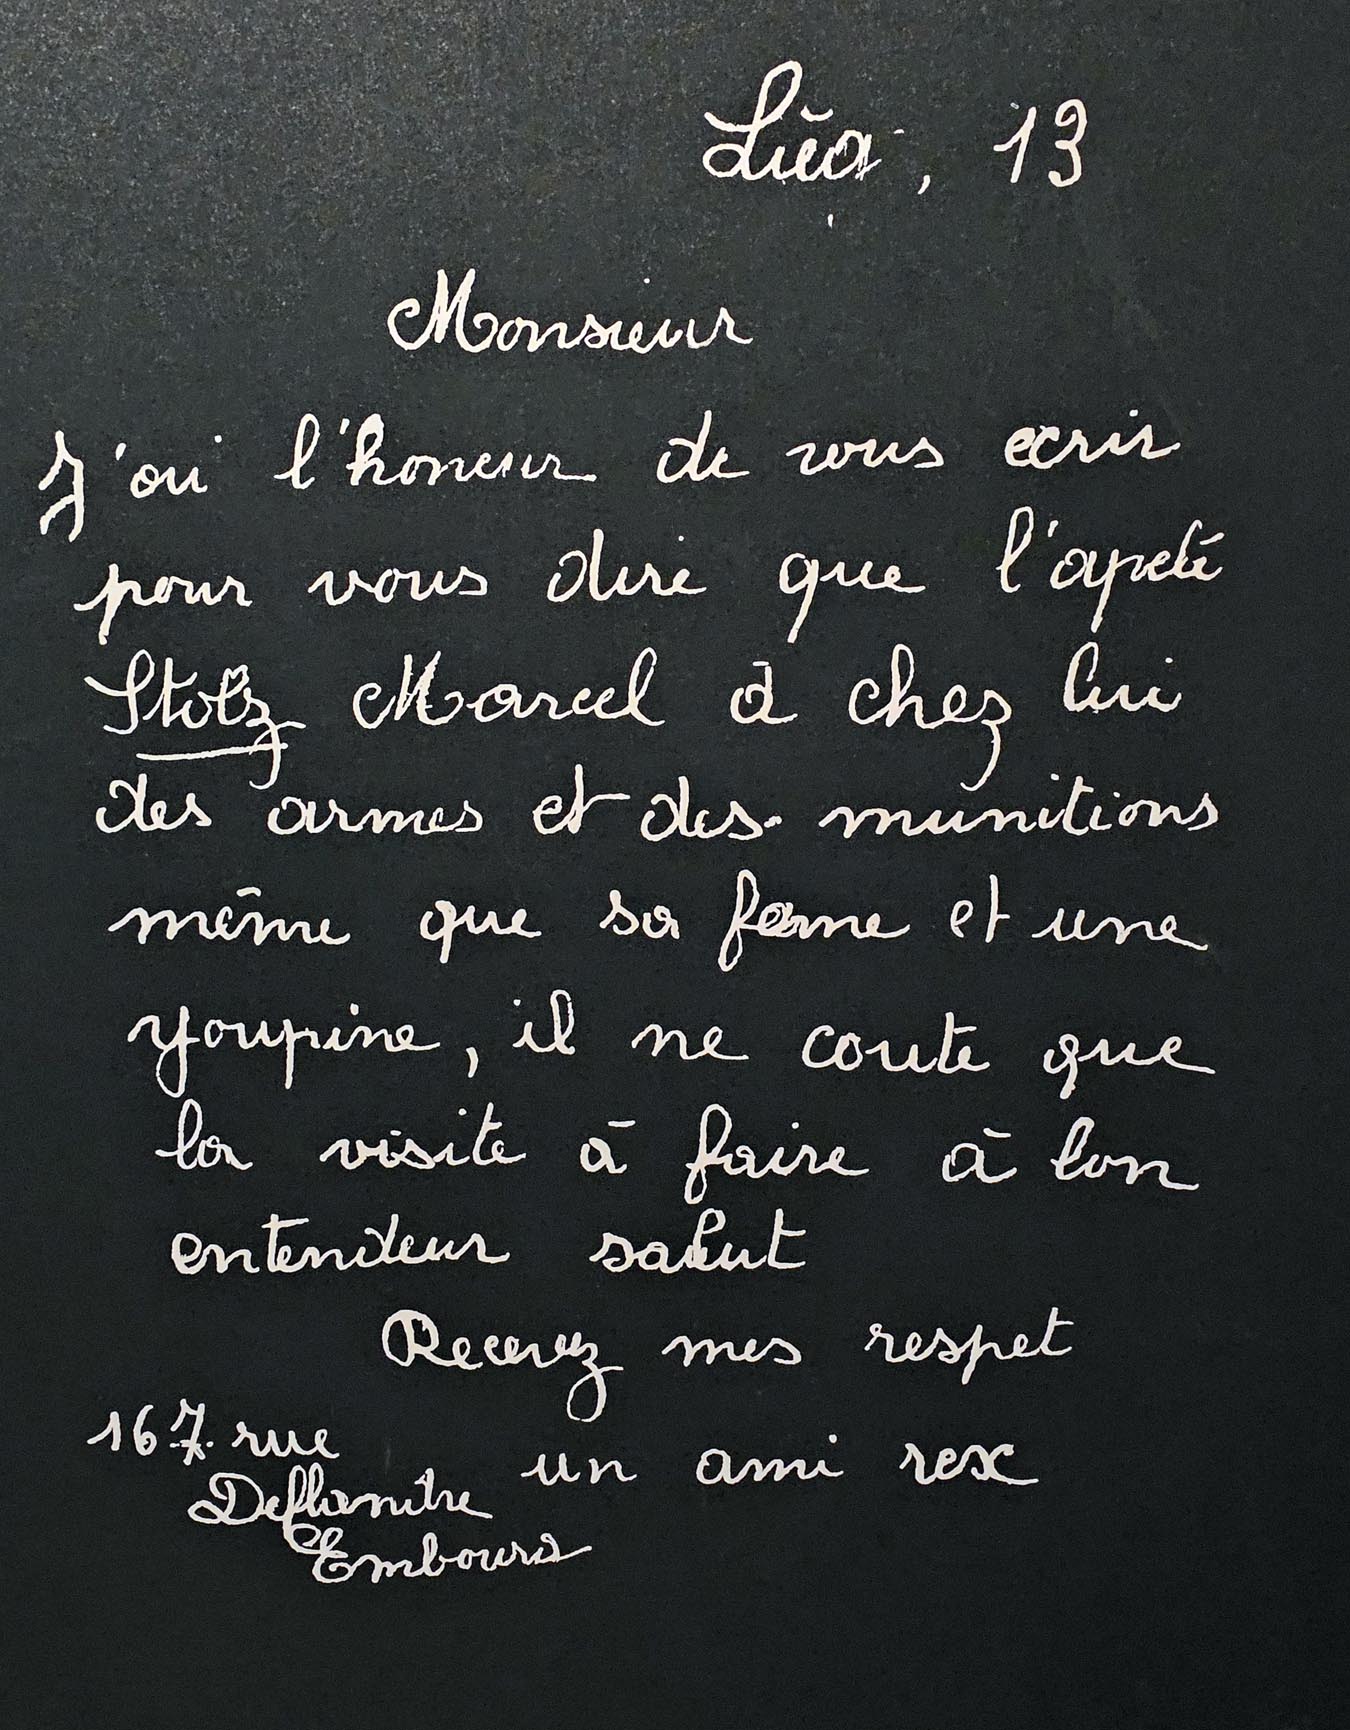 Liéa, 13
Monsieur
J'ai l'honeur de vous ecrir
pour vous dire que l'apelé
Stolz Marcel à chez lui
des armes et des munitions
même que sa fame et une
youpine, il ne coute que
la visite à faire à bon
entendeur salut
Recevez mes respet
167 rue
un ami rex
Deflandre
Embours